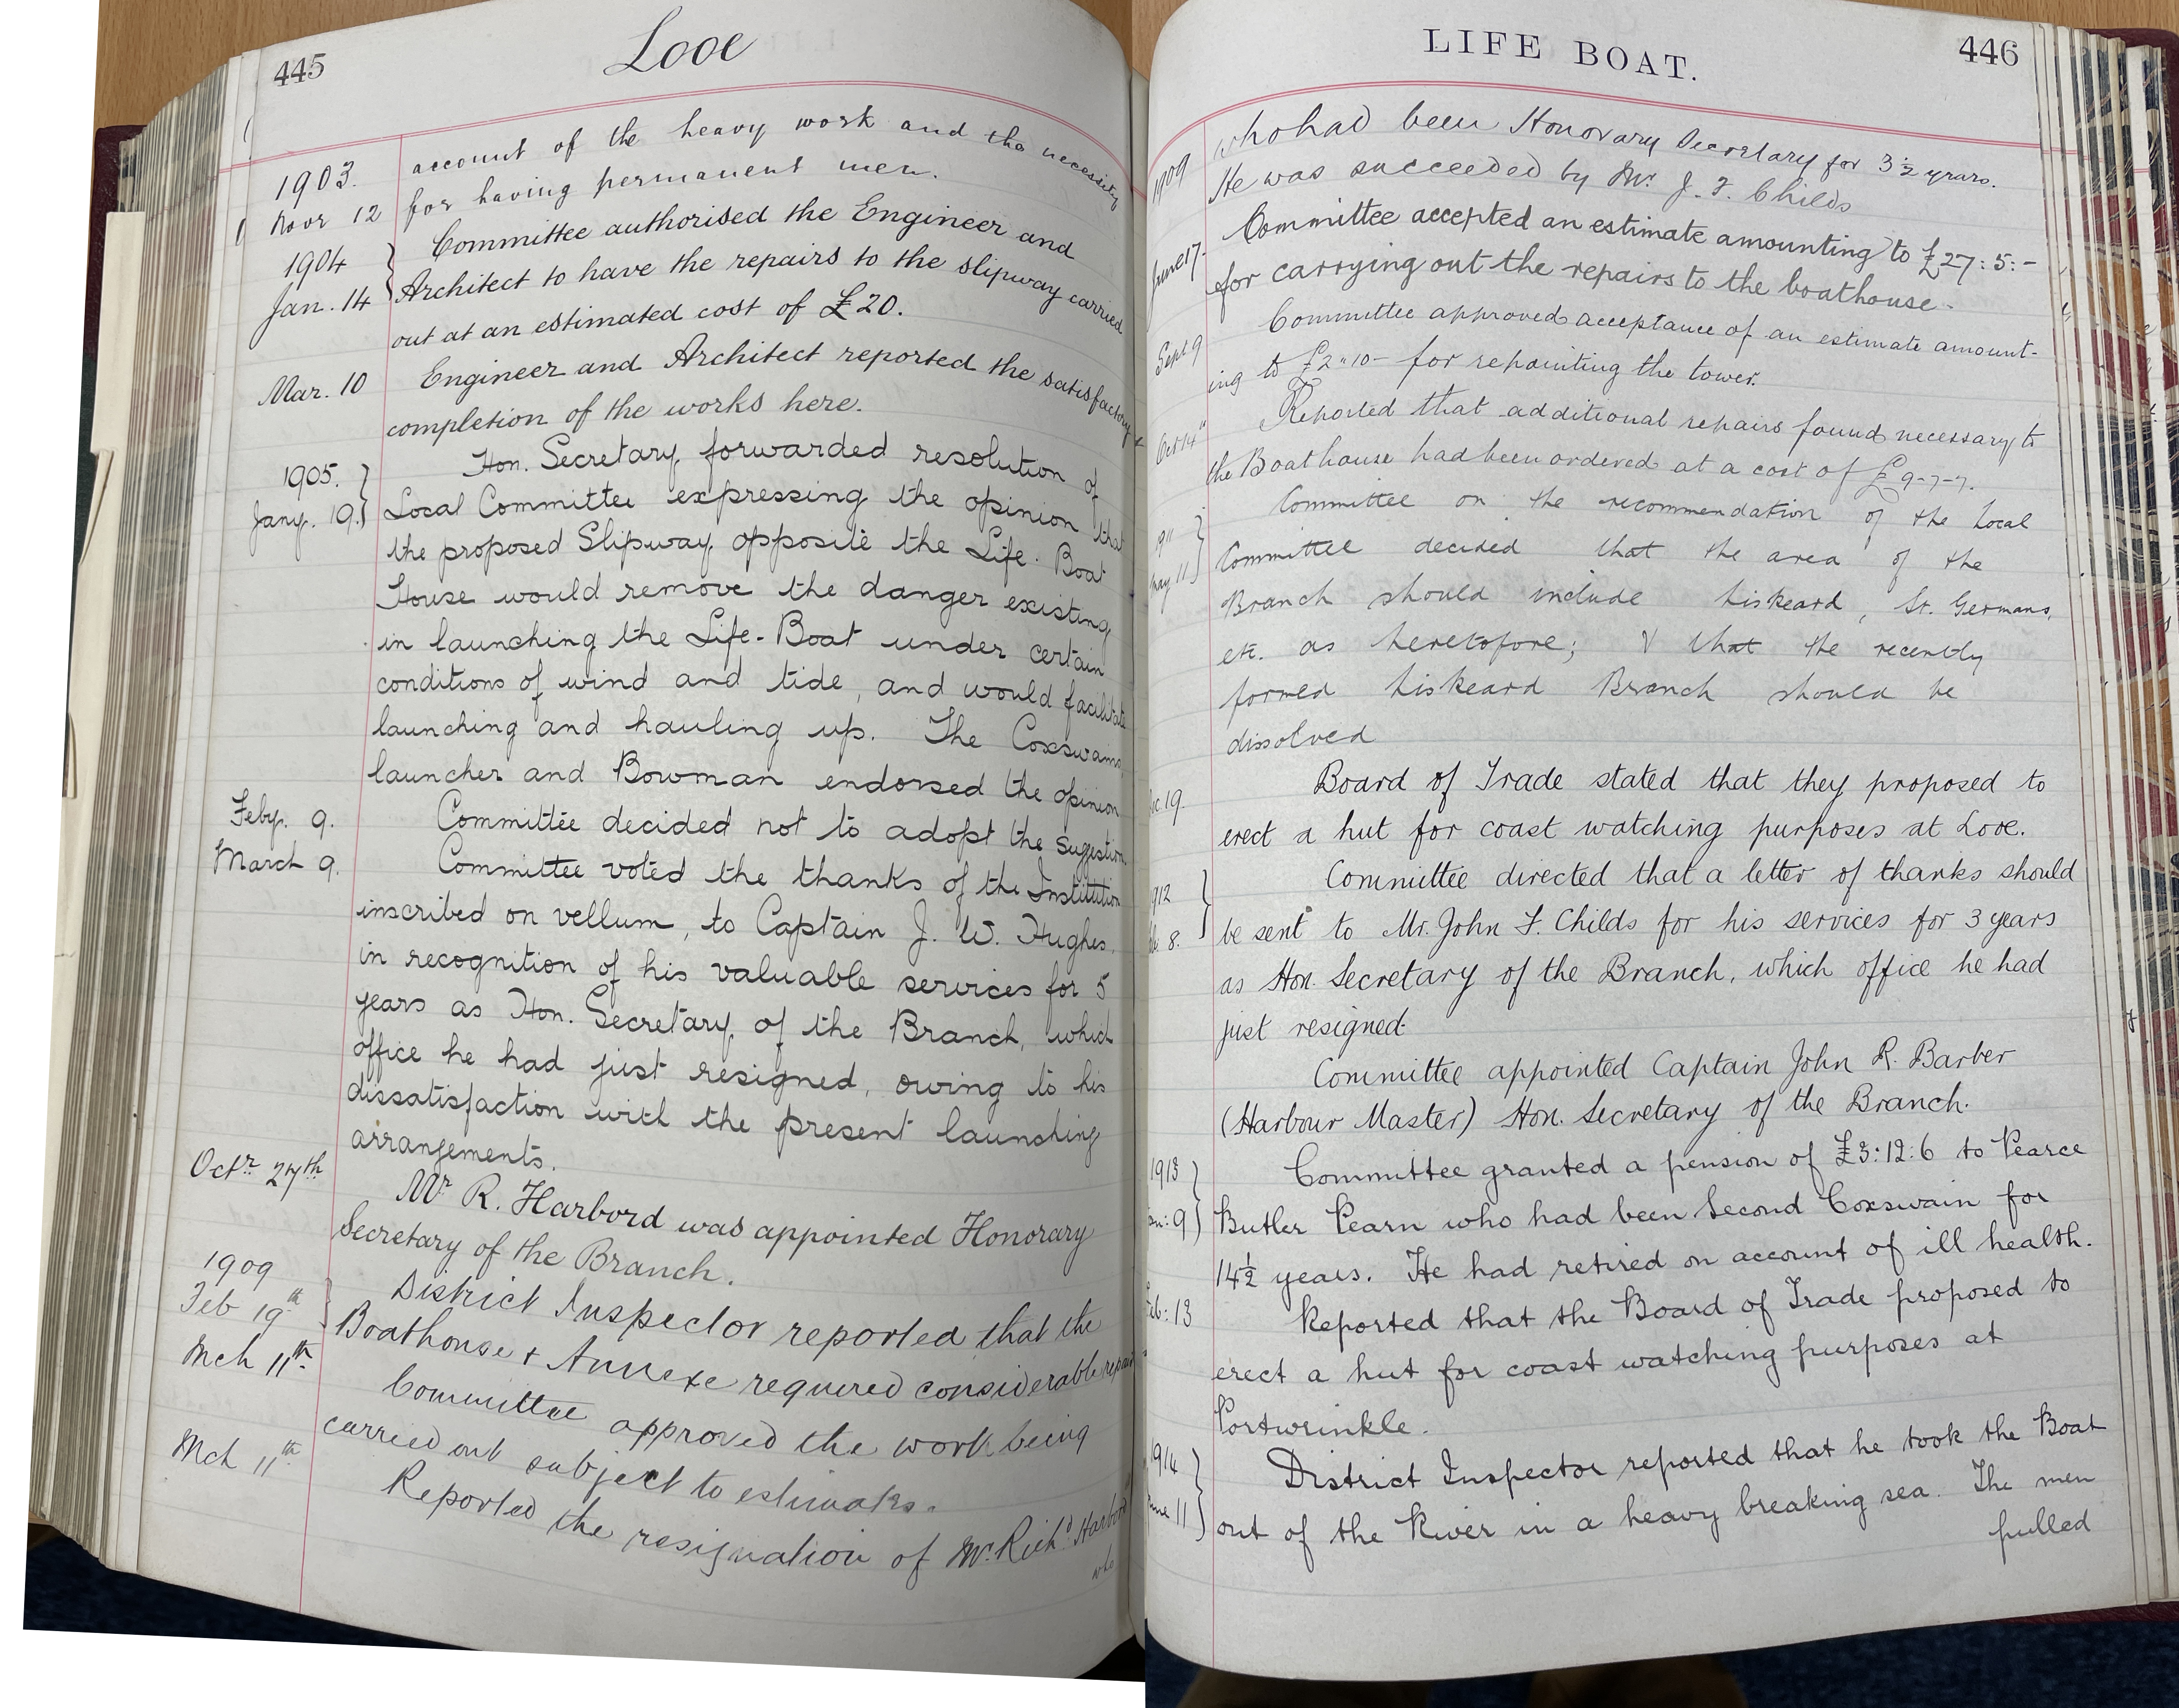 445
Looe
1903.
Nov 12
account of the heavy work and the necessity
for having permanent men.
1904
Jan. 14
Committee authorised the Engineer and
Architect to have the repairs to the slipway carried
out at an estimated cost of £20.
Mar. 10
Engineer and Architect reported the satisfactory
completion of the works here.
1905.
Jany. 19.
Hon. Secretary forwarded resolution of
Local Committee expressing the opinion that
the proposed Slipway opposite the Life-Boat
House would remove the danger existing
in launching the Life-Boat under certain
conditions of wind and tide, and would facilitate
launching and hauling up. The Coxswains,
launcher and Bowman endorsed the opinion
Feby. 9.
Committee decided not to adopt the sugestion.
March 9.
Committee voted the thanks of the Institution
inscribed on vellum, to Captain J. W. Hughes,
in recognition of his valuable services for 5
years as Hon. Secretary of the Branch, which
office he had just resigned, owing to his
dissatisfaction with the present launching
arrangements.
Octr 27th
Mr R. Harbord was appointed Honorary
Secretary of the Branch.
1909
Feb 19th
District Inspector reported that the
Boathouse & Annexe required considerable repair
Mch 11th
Committee approved the work being
carried out subject to estimates.
Mch 11th
Reported the resignation of Mr. Richd Harbord
who
LIFE BOAT.
446
1909
who had been Honorary Secretary for 3½ years.
He was succeeded by Mr. J. F. Childs
June 17.
Committee accepted an estimate amounting to £27:5:-
for carrying out the repairs to the boathouse.
Sept 9
Committee approved acceptance of an estimate amount-
ing to £2"10- for repainting the tower.
Oct 14"
Reported that additional repairs found necessary to
the Boathouse had been ordered at a cost of £9-7-7.
1911
May 11
Committee on the recommendation of the Local
Committee decided that the area of the
Branch should include Liskeard, St. Germans,
etc. as heretofore; & that the recently
formed Liskeard Branch should be
dissolved
19.
Board of Trade stated that they proposed to
erect a hut for coast watching purposes at Looe.
1912
8.
Committee directed that a letter of thanks should
be sent to Mr. John F. Childs for his services for 3 years
as Hon. Secretary of the Branch, which office he had
just resigned.
Committee appointed Captain John R. Barber
(Harbour Master) Hon. Secretary of the Branch.
1913
9
Committee granted a pension of £3:12:6 to Pearce
Butler Pearn who had been Second Coxswain for
14½ years. He had retired on account of ill health.
Feb: 13
Reported that the Board of Trade proposed to
erect a hut for coast watching purposes at
Portwrinkle.
1914
June 11
District Inspector reported that he took the Boat
out of the River in a heavy breaking sea. The men
pulled